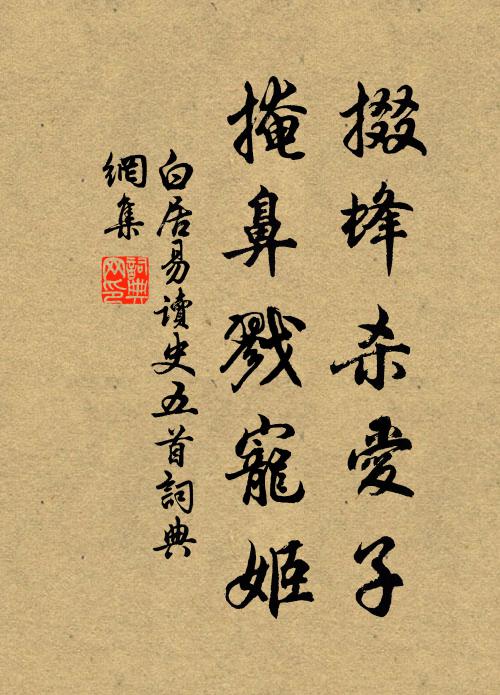 掇蜂杀愛子
掩鼻戮寵姬
白居易讀史五首詞典
網集
詞典
网印